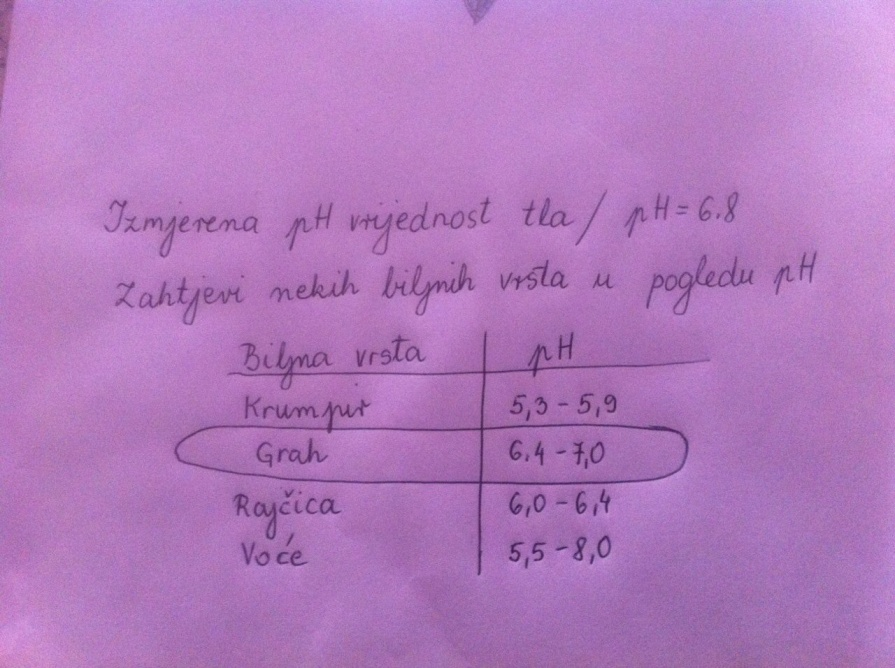 Izmjerena pH vrijednost tla / pH = 6.8
Zahtjevi nekih biljnih vrsta u pogledu pH
Biljna vrsta pH
Krumpir 5,3 - 5,9
Grah 6.4 - 7,0
Rajčica 6,0 - 6,4
Voće 5,5 - 8,0